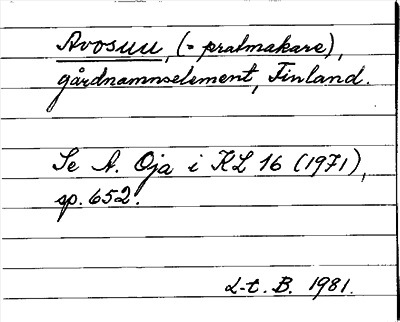 Avosuu, (= pralmakare),
gårdnamnselement, Finland.
Se A. Oja i KL 16 (1971),
sp. 652.
L-t. B. 1981.